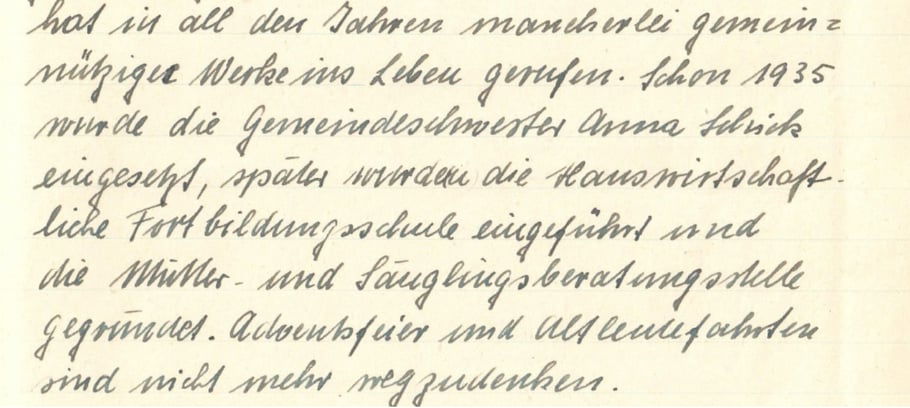 hat in all den Jahren mancherlei gemein=
nützige Werke ins Leben gerufen. Schon 1935
wurde die Gemeindeschwester Anna Schick
eingesetzt, später wurden die Hauswirtschaft-
liche Fortbildungsschule eingeführt und
die Mütter- und Säuglingsberatungsstelle
gegründet. Adventsfeier und Altleutefahrten
sind nicht mehr wegzudenken.